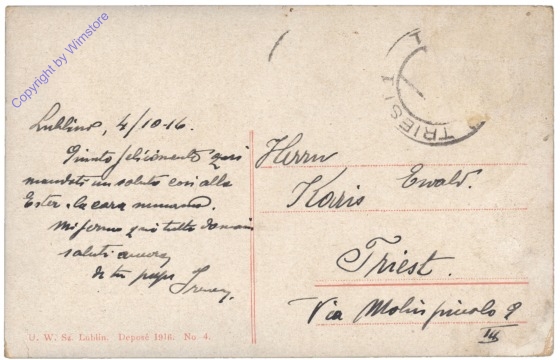 Copyright by Wimstore
TRIEST
Lublino, 4/10-16.
Giunto felicemente qui
mandate un saluto così alla
Ester - la cara mamma.
Mi fermo qui tutto domani
saluti ancora
di tuo papa
Herrn
Ewald.
Koris
Triest.
Via Molin piccolo 9
III
U. W. Sz. Lublin. Deposé 1916. No. 4.